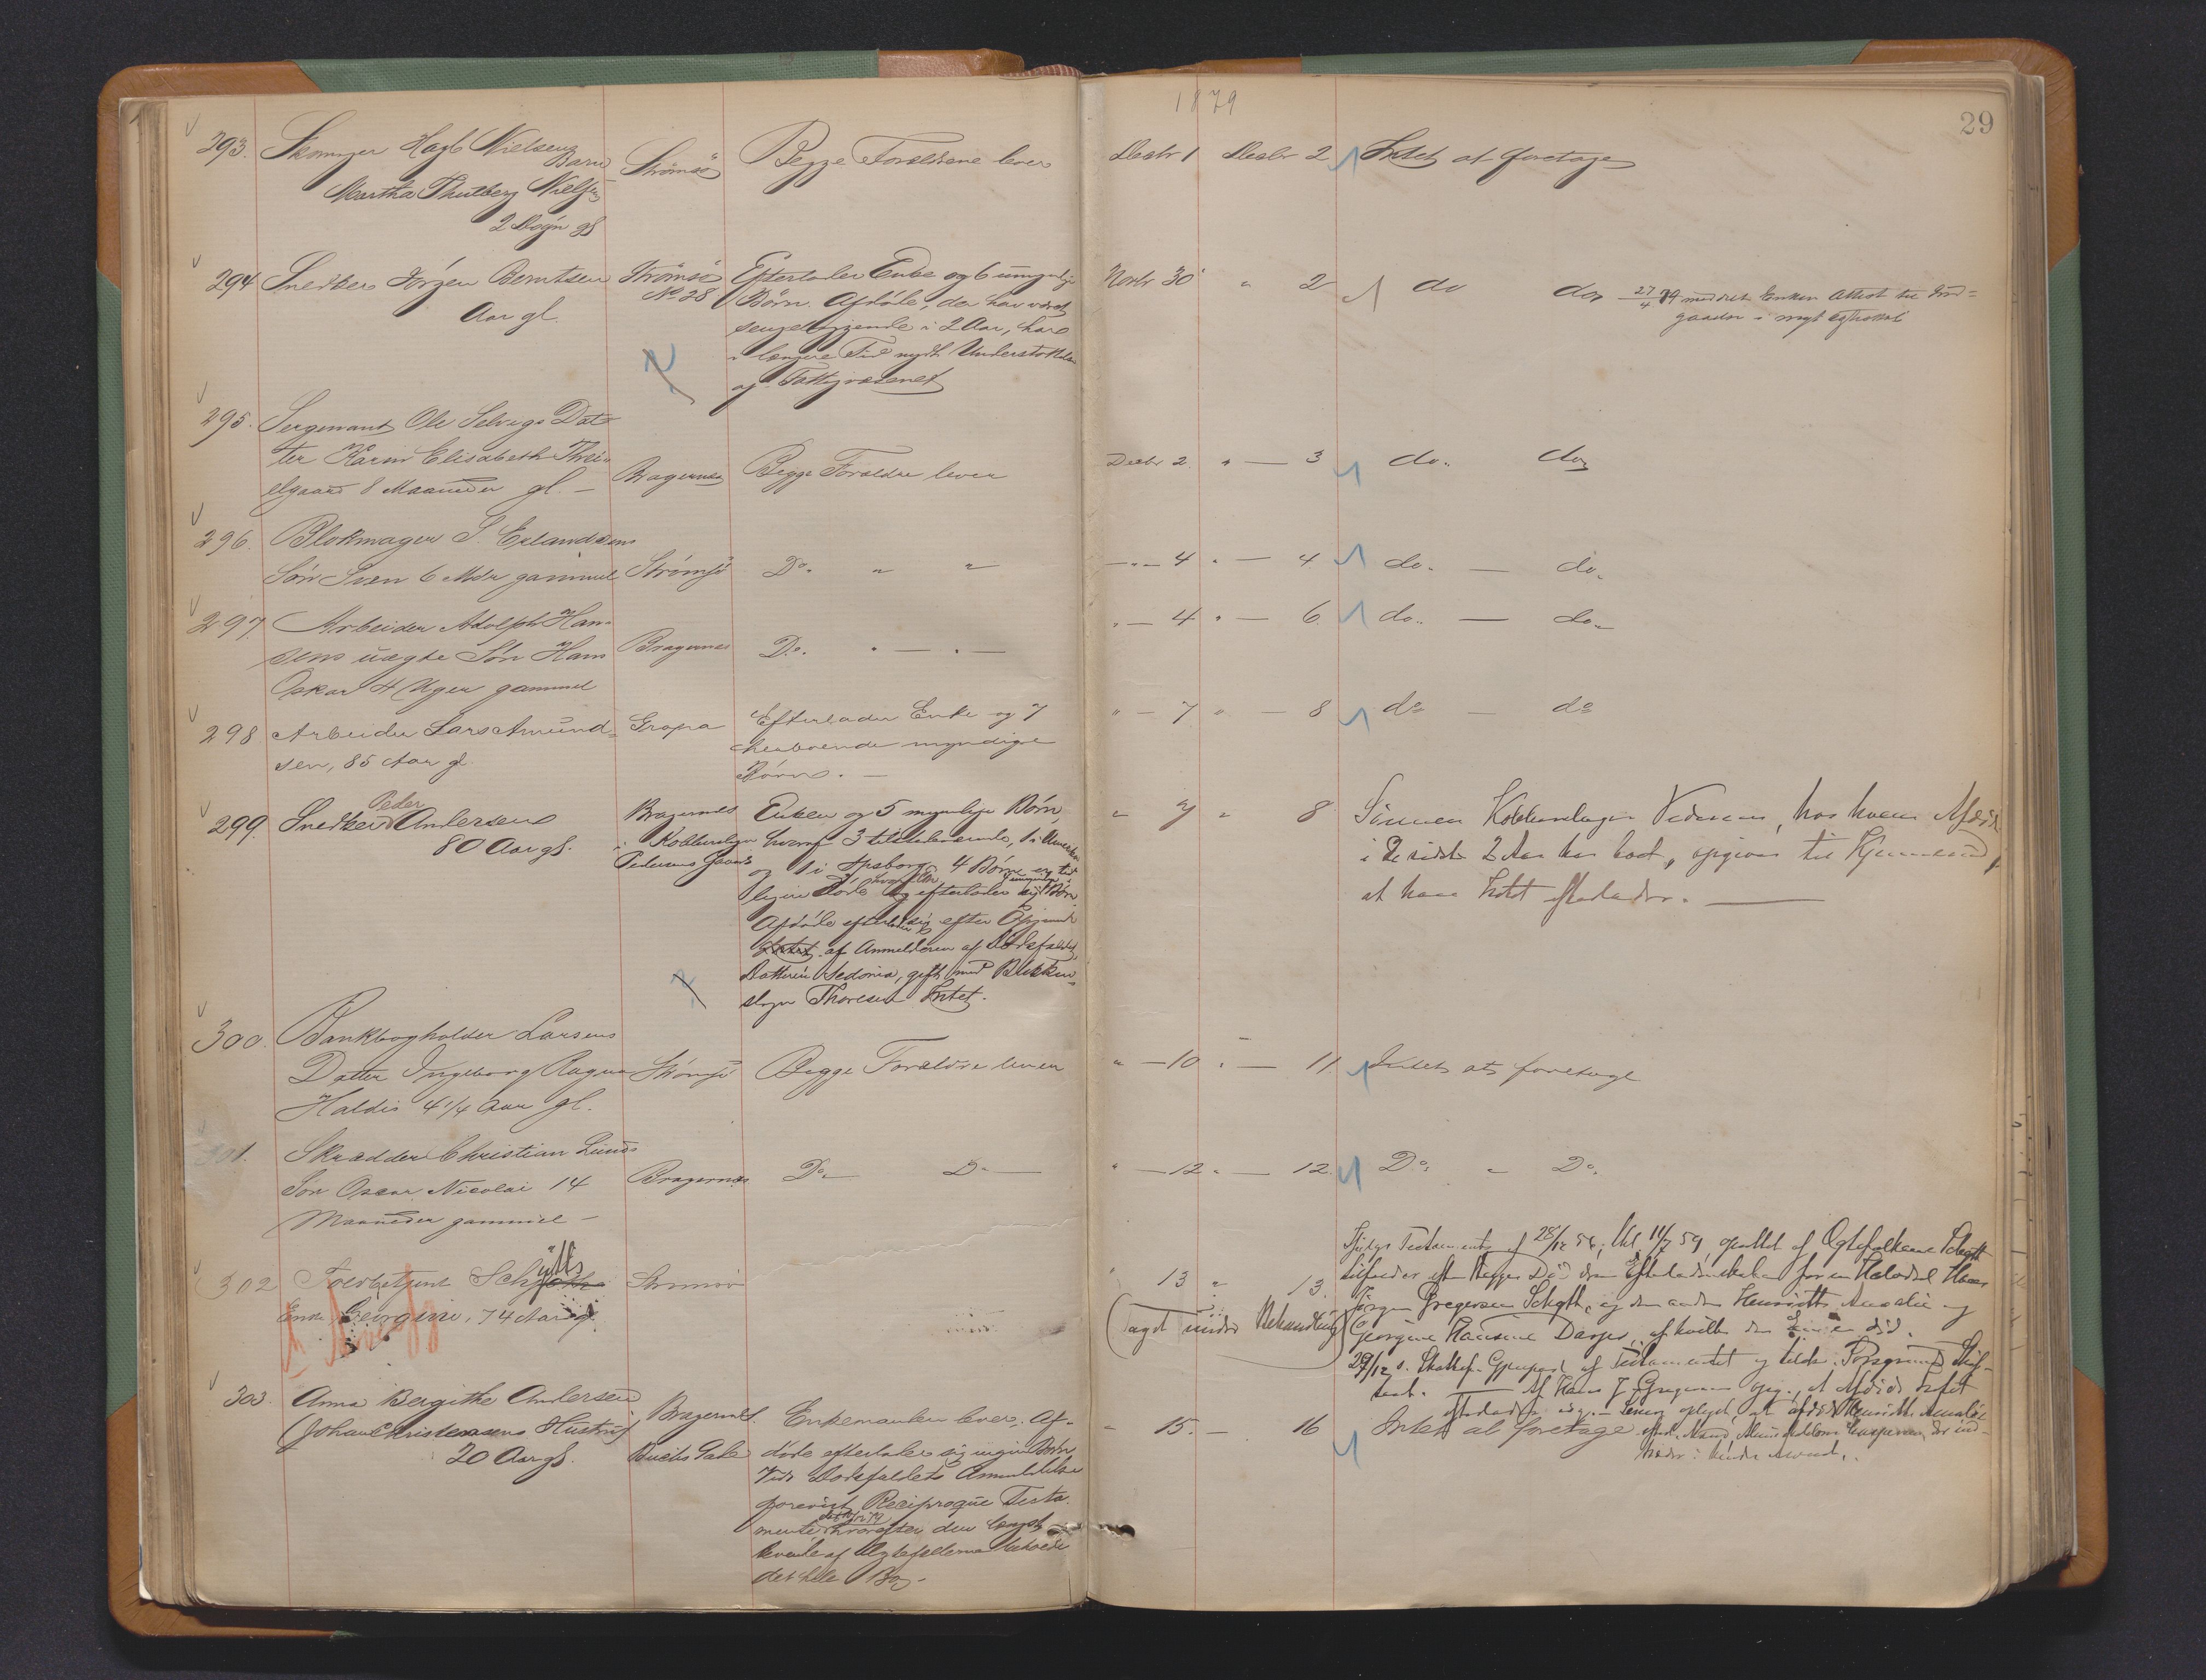 1879
29
293. Skomager Hagb Nielsens Barn
Martha Thulberg Nielsen
2 Døgn gl
Strømsø
Begge Forældrene lever
Decbr 1 Decbr 2 Intet at foretage
294 Snedker Jörgen Berntsen
Aar gl.
Strømsø
No 28
Efterlader Enke og 6 umyndige
Børn. Afdøde, der har været
sengeliggende i 2 Aar, har
i længere Tid nydt Understøttelse
af Fattigvæsenet
Novbr 30 " 2 do do 27/4 89 meddelt Enken Attest til Ind=
gaaelse i nyt Egteskab
295. Sergeant Ole Selvigs Dat
ter Karen Elisabeth
8 Maaneder gl. —
Bragernes
Begge Forældre lever
Decbr 2. " — 3 do. do
296. Blokmager S. Erlandsens
Søn Sven 6 Mdr gammel
Strømsø
Do. " "
— " — 4 " — 4 do. — do.
297 Arbeider Adolph Han-
sens uægte Søn Hans
Oskar 4 Uger gammel
Bragernes
Do. " — " —
" — 4 " — 6. do. — do.
298 Arbeider Lars Amund=
sen, 85 Aar gl
Gropa
Efterlader Enke og 7
herboende myndige
Børn. —
" — 7 " — 8 do — do
299. Snedker Peder Andersen
80 Aar gl.
Bragernes
i Kobberslager
Pedersens Gaard
Enken og 5 myndige Børn,
hvoraf 3 tilstedeværende, 1 i Amerika
og 1 i Apsborg. 4 Børn er tid
ligere døde og efterlader sig Børn.
Afdøde efterlader sig efter Opgivende
af Anmelderen af Dødsfaldet,
Datteren Sedonia, gift med Blikken=
slager Thoresen Intet.
" 7 " 8 Sönnen Kobberslager Pedersen, hos hvem Afdöde
i de sidste 2 Aar har boet, opgiver til Kjendend,
at han Intet efterlader. —
300. Bankbogholder Larsens
Datter Ingeborg Ragna
Haldis 4 1/4 Aar gl.
Strømsø
Begge Forældre lever
" — 10 " — 11. Intet at foretage
301. Skrædder Christian Lunds
Søn Oscar Nicolai 14
Maaneder gammel —
Bragernes
Do — Do —
" — 12 " — 12 Do. " Do.
302 Toldbetjent Schjøtts
Enke Georgine, 74 Aar gl
Strømsø
" 13 " 13
(Taget under Behandling)
Ifølge Testament af 28/12 58, 11/7 59, oprettet af Ægtefolkene Schøtt
tilfalder efter Begges Død den Efterladenskaben for en Halvdel Hans
Jørgen Gregersen Schøtt, og den anden Henriette Amalie og
Georgine Hansine Dorges, af hvilke den er död.
29/12 s. af Testamentet og tilst. Porsgrund Skif=
teret. — Af Hans J Gregersen opg., at Afdöde Intet
efterlader sig. — oplyst, at afdöde Henriette Amalie
303. Anna Bergithe Andersen
(Johan Christensens Hustru)
20 Aar gl.
Bragernes.
Buchs Gade
Enkemanden lever. Af-
døde efterlader sig ingen Børn
Ved Dødsfaldets Anmeldelse
forevist Reciproque Testa-
mente hvorefter den længst
levende af Ægtefællerne beholder
det hele Bo. —
" 15. — 16 Intet at foretage